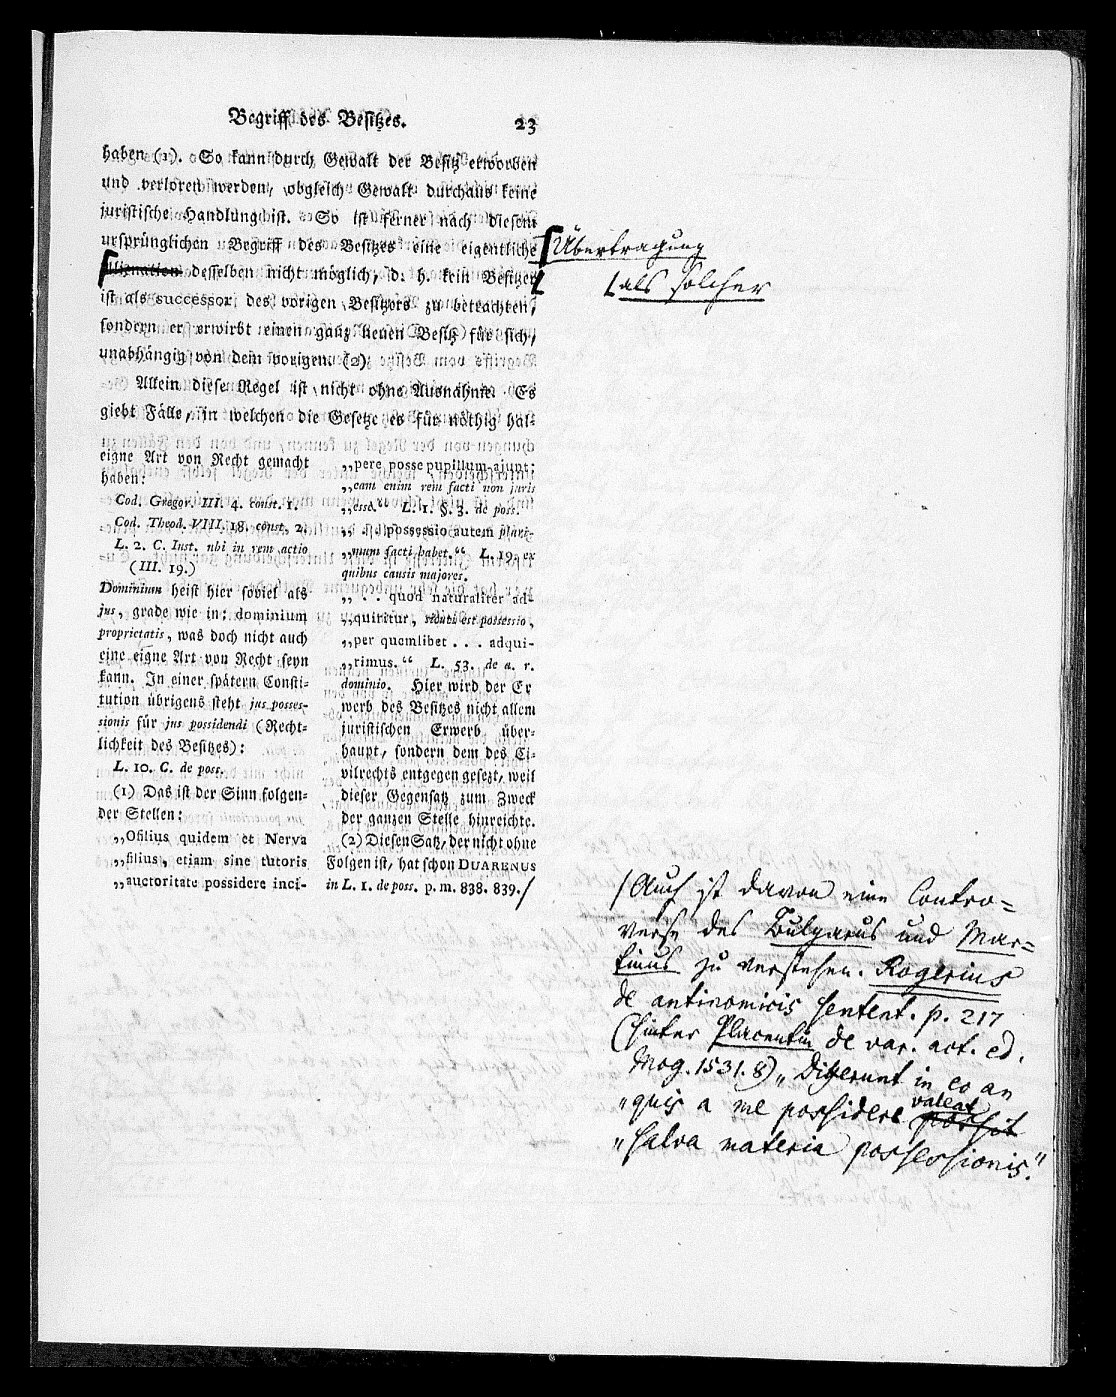 Begriff des Besitzes. 23
haben (1). So kann durch Gewalt der Besitz erworben
und verloren werden, obgleich Gewalt durchaus keine
juristische Handlung ist. So ist ferner nach diesem
ursprünglichen Begriff des Besitzes eine eigentliche
Alienation desselben nicht möglich, d. h. kein Besitzer
ist als successor des vorigen Besitzers zu betrachten,
sondern er erwirbt einen ganz neuen Besitz für sich,
unabhängig von dem vorigen. (2)
Allein diese Regel ist nicht ohne Ausnahme. Es
giebt Fälle, in welchen die Gesetze es für nöthig hal-
eigne Art von Recht gemacht
haben:
Cod. Gregor. III. 4. const. 1.
Cod. Theod. VIII. 18. const. 2.
L. 2. C. Inst. ubi in rem actio
(III. 19.)
Dominium heist hier soviel als
jus, grade wie in: dominium
proprietatis, was doch nicht auch
eine eigne Art von Recht seyn
kann. In einer spätern Consti-
tution übrigens steht jus posses-
sionis für jus possidendi (Recht-
lichkeit des Besitzes):
L. 10. C. de poss.
(1) Das ist der Sinn folgen-
der Stellen:
„Ofilius quidem et Nerva
„filius, etiam sine tutoris
„auctoritate possidere inci-
„pere posse pupillum ajunt:
„eam enim rem facti non juris
„esse.“ L. 1. §. 3. de poss.
„ . . possessio autem pluri-
„mum facti habet.“ L. 19. ex
quibus causis majores.
„ . . quod naturaliter ad-
„quiritur, sicuti est possessio,
„per quemlibet . . . adqui-
„rimus.“ L. 53. de a. r.
dominio. Hier wird der Er
werb des Besitzes nicht allem
juristischen Erwerb über-
haupt, sondern dem des Ci-
vilrechts entgegen gesezt, weil
dieser Gegensatz zum Zweck
der ganzen Stelle hinreichte.
(2) Diesen Satz, der nicht ohne
Folgen ist, hat schon DUARENUS
in L. 1. de poss. p. m. 838. 839./
Übertragung
als solcher
/Auch ist davon eine Contro=
verse des Bulgarus und Mar=
tinus zu verstehen. Rogerius
de antinomicis sentent. p. 217
(hinter Placentin de var. act. ed.
Mog. 1531. 8) „Differunt in eo an
„quis a me possidere valeat possit
„salva materia possessionis.“